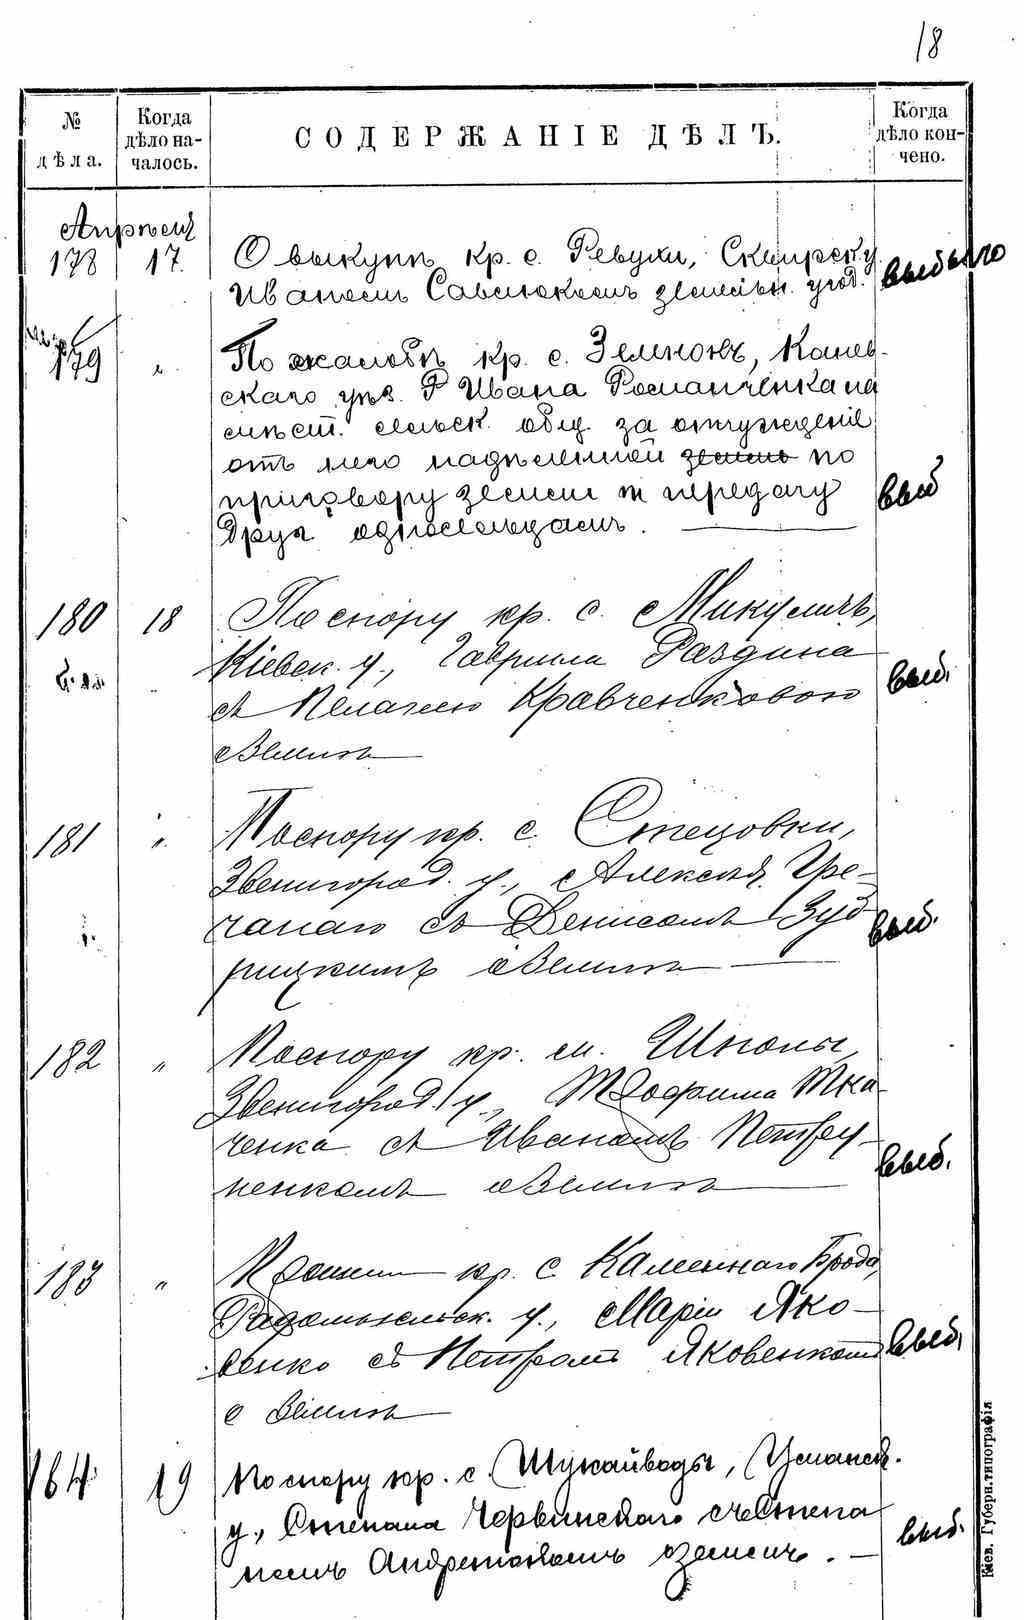 18
№ дѣла.
Когда дѣло началось.
СОДЕРЖАНІЕ ДѢЛЪ.
Когда дѣло кончено.
Апрѣля
178 17. О выкупѣ кр. с. Ревухи, Сквирск. у. выбыло
Иваномъ Савлюкомъ земельн. угод.
179 „ По жалобѣ кр. с. Зеленокъ, Канев-
скаго уѣз. Ивана Романченка на
мѣст. сельск. общ. за отчужденіе
отъ него надѣленной земли по
приговору земли и передачу выб
друг. односельцамъ.
180 18 По спору кр. с. Микуличъ,
Кіевск. у., Гаврила Раздина выб.
съ Пелагіею Кравченковою
о землѣ
181 „ По спору кр. с. Стецовки,
Звенигород. у., Алексѣя Гре-
чанаго съ Денисомъ Зуб- выб.
рицкимъ о землѣ
182 „ По спору кр. м. Шполы,
Звенигород. у., Трофима Тка-
ченка съ Иваномъ Петру- выб.
ненкомъ о землѣ
183 „ кр. с. Каменнаго Брода,
Радомысльск. у., Маріи Яко-
венко съ Петромъ Яковенкомъ выб.
о землѣ
184 19 По спору кр. с. Шукайводы, Уманск.
у., Степана Червинскаго съ Степа
номъ о землѣ. выб.
Кіев. Губерн. типографія